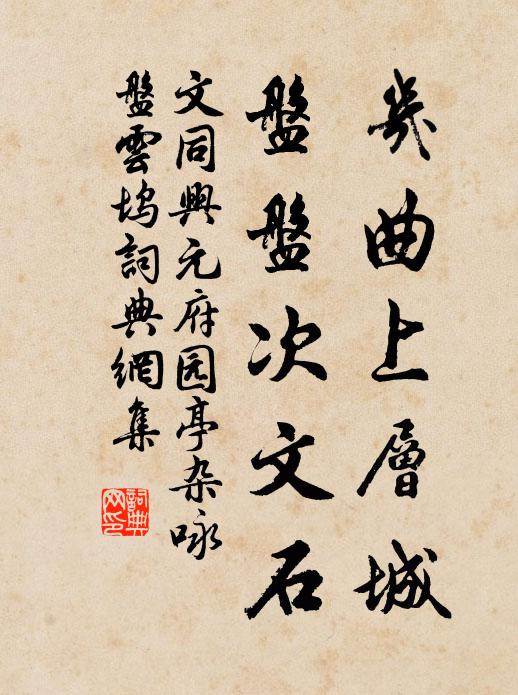 幾曲上層城
盤盤次文石
文同興元府园亭杂咏
盤雲塢詞典網集
詞典
网印